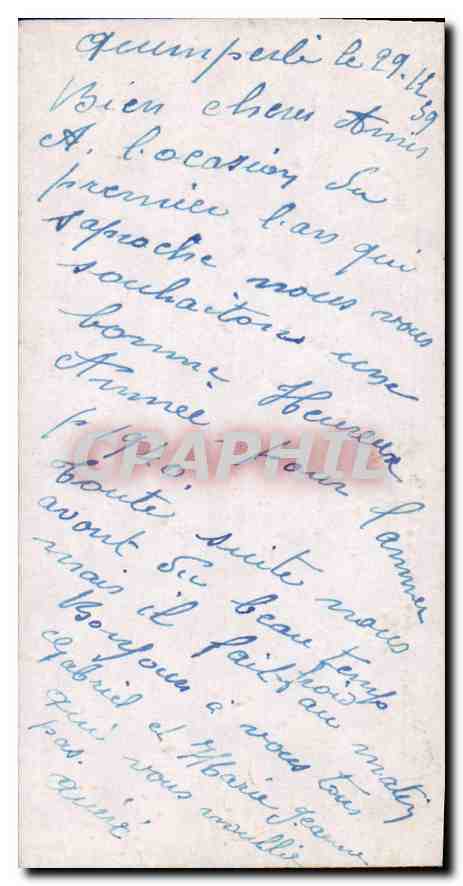 quimperlé le 29.12
39
Bien chers Amis
A. l'ocasion du
premier l'an qui
saproche nous vous
souhaitons une
bonne Heureux
Année Pour l'anner
1940
toute suite nous
avont du beau temp
mais il fait froid au matin
Bonjour a vous tous
Gabriel et Marie Jeanne
qui vous oublie
pas.
CPAPHIL